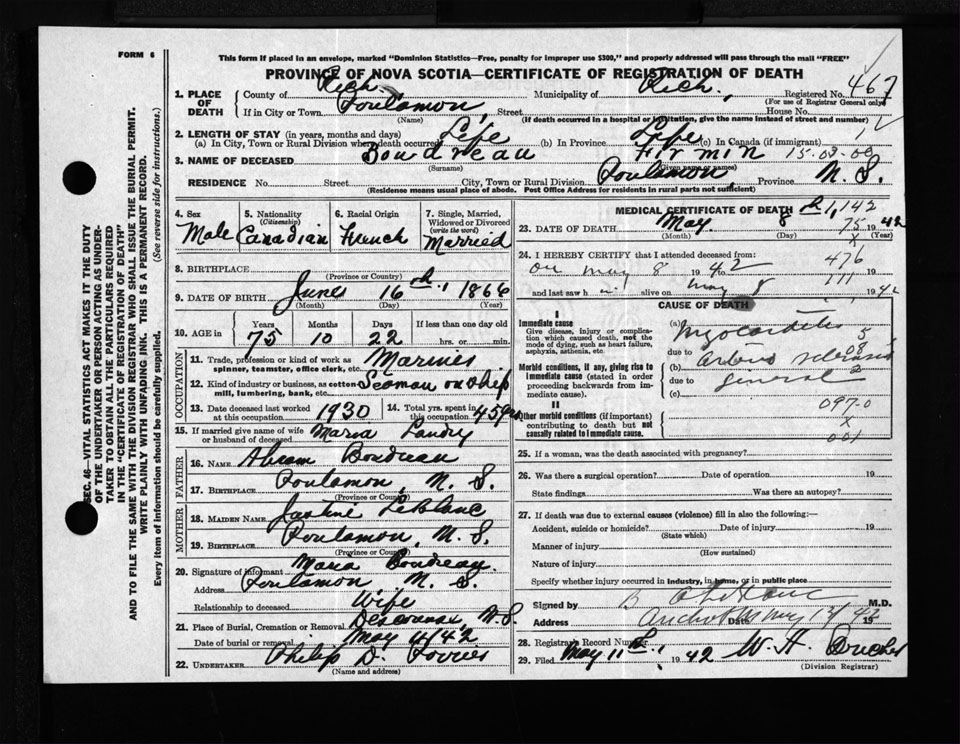 FORM 6
This form if placed in an envelope, marked "Dominion Statistics—Free, penalty for improper use $300," and properly addressed will pass through the mail "FREE"
PROVINCE OF NOVA SCOTIA—CERTIFICATE OF REGISTRATION OF DEATH
467
1. PLACE OF DEATH
County of Rich. Municipality of Rich. Registered No.
(For use of Registrar General only)
If in City or Town Poulamon Street House No.
(Name) (If death occurred in a hospital or institution, give the name instead of street and number)
2. LENGTH OF STAY (in years, months and days)
(a) In City, Town or Rural Division where death occurred Life (b) In Province Life (c) In Canada (if immigrant)
3. NAME OF DECEASED Boudreau Firmin 15-03-00
(Surname) (Given name or names)
RESIDENCE No. Street City, Town or Rural Division Poulamon, Province N. S.
(Residence means usual place of abode. Post Office Address for residents in rural parts not sufficient)
4. Sex Male
5. Nationality (Citizenship) Canadian
6. Racial Origin French
7. Single, Married, Widowed or Divorced (write the word) Married
8. BIRTHPLACE
(Province or Country)
9. DATE OF BIRTH June 16th, 1866
(Month) (Day) (Year)
10. AGE in Years 75 Months 10 Days 22 If less than one day old hrs. or min.
OCCUPATION
11. Trade, profession or kind of work as spinner, teamster, office clerk, etc. Mariner
12. Kind of industry or business, as cotton mill, lumbering, bank, etc. Seaman on ship
13. Date deceased last worked at this occupation 1930
14. Total yrs. spent in this occupation 45 yrs
15. If married give name of wife or husband of deceased Maria Landry
FATHER
16. NAME Abram Boudreau
17. BIRTHPLACE Poulamon, N. S.
(Province or Country)
MOTHER
18. MAIDEN NAME Justine LeBlanc
19. BIRTHPLACE Poulamon, N. S.
(Province or Country)
20. Signature of informant Maria Boudreau
Address Poulamon N. S.
Relationship to deceased Wife
21. Place of Burial, Cremation or Removal N.S.
Date of burial or removal May 11/42
22. UNDERTAKER Philip D. Poirier
(Name and address)
MEDICAL CERTIFICATE OF DEATH 1,142
23. DATE OF DEATH May 8 1942
(Month) (Day) (Year)
75
24. I HEREBY CERTIFY that I attended deceased from:
on May 8 1942
476
111
and last saw h alive on May 8 1942
CAUSE OF DEATH
I
Immediate cause
Give disease, injury or complication which caused death, not the mode of dying, such as heart failure, asphyxia, asthenia, etc.
(a) Myocarditis
due to
Morbid conditions, if any, giving rise to immediate cause (stated in order proceeding backwards from immediate cause).
(b) arterio sclerosis
due to general
(c)
II
Other morbid conditions (if important) contributing to death but not causally related to immediate cause.
097.0
X
001
25. If a woman, was the death associated with pregnancy?
26. Was there a surgical operation? Date of operation 19
State findings Was there an autopsy?
27. If death was due to external causes (violence) fill in also the following:—
Accident, suicide or homicide? Date of injury 19
(State which)
Manner of injury
(How sustained)
Nature of injury
Specify whether injury occurred in industry, in home, or in public place
Signed by M.D.
Address Arichat Date May 19
28. Registrar's Record Number
29. Filed May 11th, 1942 W. H.
(Division Registrar)
SEC. 46—VITAL STATISTICS ACT MAKES IT THE DUTY OF THE UNDERTAKER OR PERSON ACTING AS UNDERTAKER TO OBTAIN ALL THE PARTICULARS REQUIRED IN THE "CERTIFICATE OF REGISTRATION OF DEATH"
AND TO FILE THE SAME WITH THE DIVISION REGISTRAR WHO SHALL ISSUE THE BURIAL PERMIT.
WRITE PLAINLY WITH UNFADING INK. THIS IS A PERMANENT RECORD.
Every item of information should be carefully supplied. (See reverse side for instructions.)